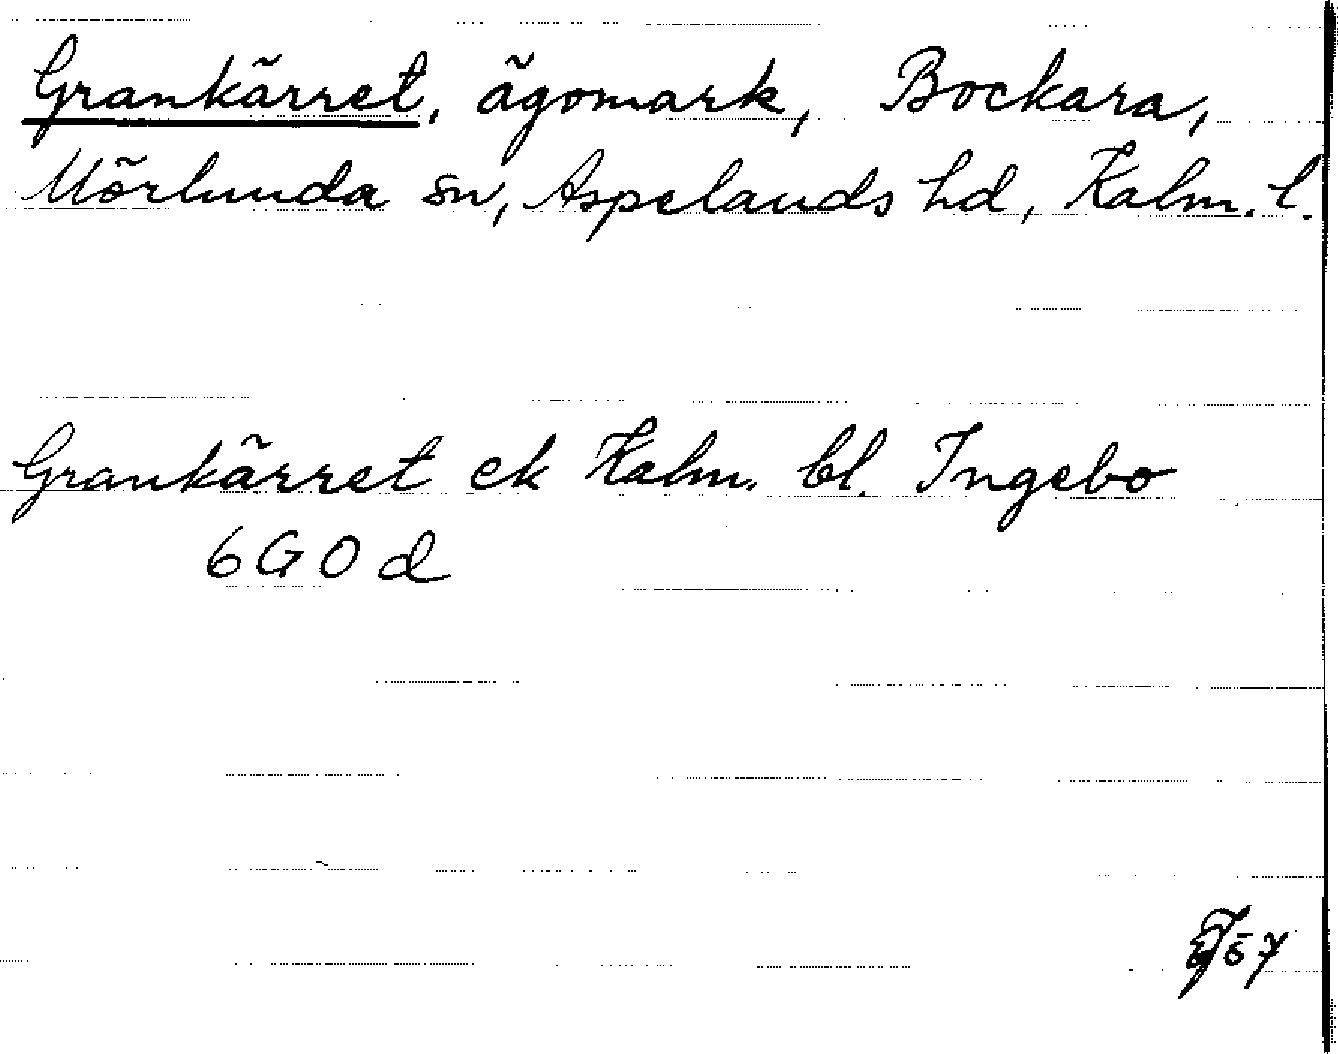 Grankärret, ägomark, Bockara,
Mörlunda sn, Aspelands hd, Kalm. l.
Grankärret ek Kalm. bl. Ingebo
6G0d
57